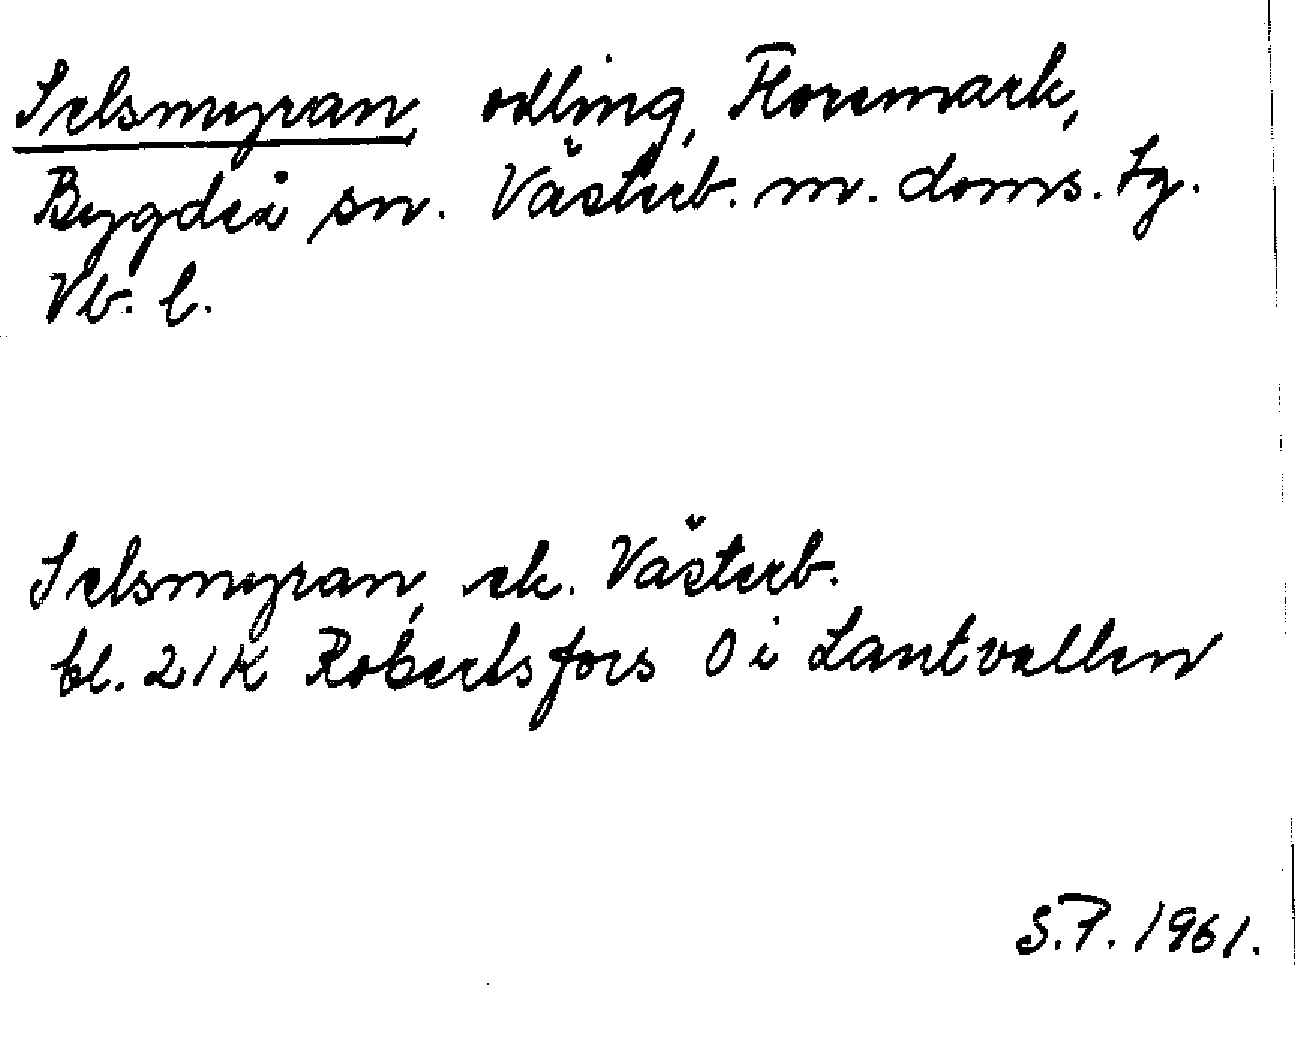 Selsmyran, odling, Floremark,
Bygdeå sn. Västerb. m. doms. tg.
Vb. l.
Selsmyran, ek. Västerb.
bl. 21K Robertsfors O i Lantvallen
S.P. 1961.